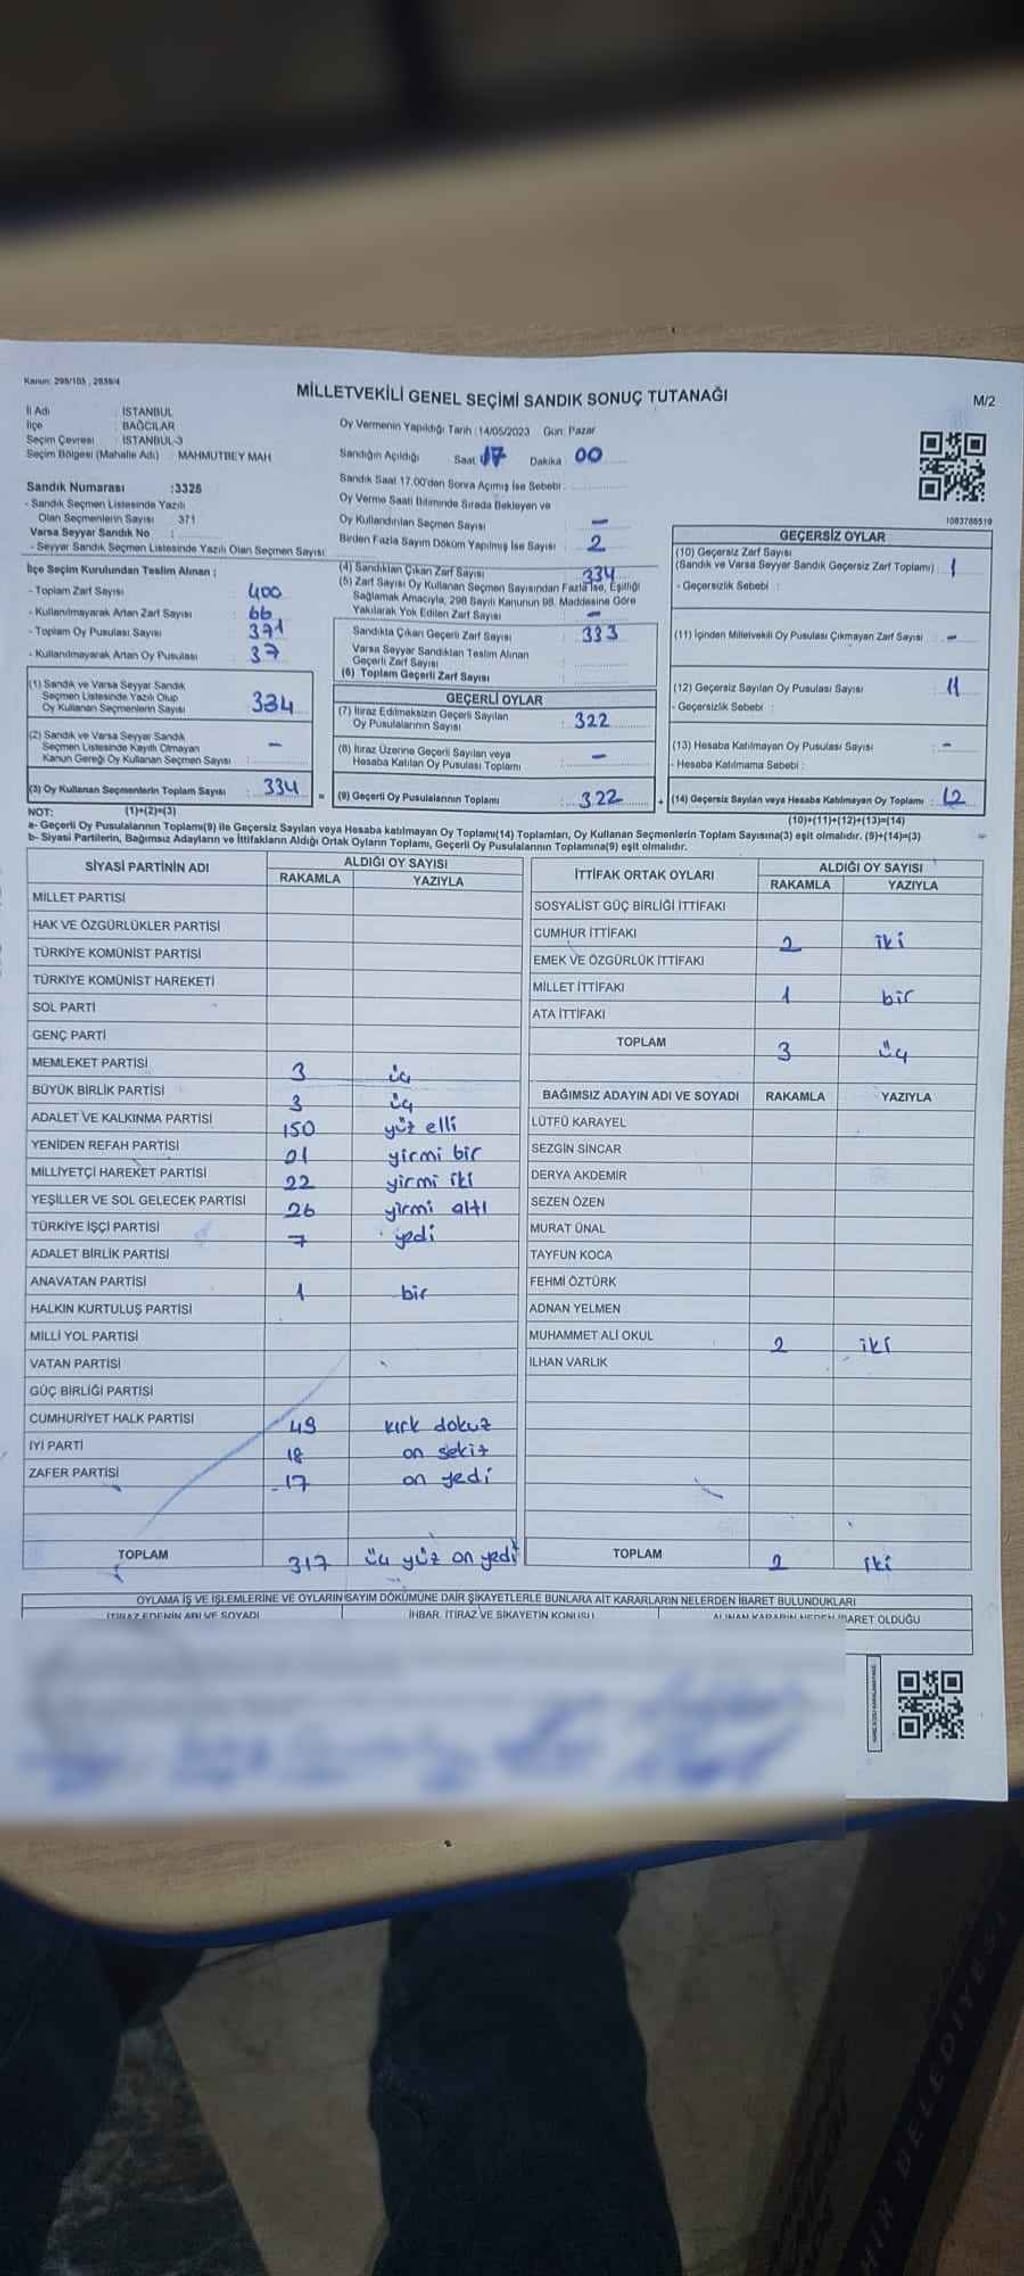 Kanun: 298/105 , 2839/4
MİLLETVEKİLİ GENEL SEÇİMİ SANDIK SONUÇ TUTANAĞI
M/2
İl Adı : İSTANBUL
İlçe : BAĞCILAR
Seçim Çevresi : İSTANBUL-3
Seçim Bölgesi (Mahalle Adı) : MAHMUTBEY MAH
Sandık Numarası :3328
- Sandık Seçmen Listesinde Yazılı
Olan Seçmenlerin Sayısı : 371
Varsa Seyyar Sandık No :
- Seyyar Sandık Seçmen Listesinde Yazılı Olan Seçmen Sayısı :
Oy Vermenin Yapıldığı Tarih :14/05/2023 Gün: Pazar
Sandığın Açıldığı Saat 17 Dakika 00
Sandık Saat 17.00'den Sonra Açımış İse Sebebi :
Oy Verme Saati Bitiminde Sırada Bekleyen ve
Oy Kullandırılan Seçmen Sayısı —
Birden Fazla Sayım Döküm Yapılmış İse Sayısı 2
1083788519
İlçe Seçim Kurulundan Teslim Alınan :
- Toplam Zarf Sayısı : 400
- Kullanılmayarak Artan Zarf Sayısı : 66
- Toplam Oy Pusulası Sayısı : 371
- Kullanılmayarak Artan Oy Pusulası : 37
(1) Sandık ve Varsa Seyyar Sandık
Seçmen Listesinde Yazılı Olup
Oy Kullanan Seçmenlerin Sayısı : 334
(2) Sandık ve Varsa Seyyar Sandık
Seçmen Listesinde Kayıtlı Olmayan
Kanun Gereği Oy Kullanan Seçmen Sayısı : —
(3) Oy Kullanan Seçmenlerin Toplam Sayısı : 334
(4) Sandıktan Çıkan Zarf Sayısı : 334
(5) Zarf Sayısı Oy Kullanan Seçmen Sayısından Fazla İse, Eşitliği
Sağlamak Amacıyla, 298 Sayılı Kanunun 98. Maddesine Göre
Yakılarak Yok Edilen Zarf Sayısı : —
Sandıkta Çıkan Geçerli Zarf Sayısı : 333
Varsa Seyyar Sandıktan Teslim Alınan
Geçerli Zarf Sayısı :
(6) Toplam Geçerli Zarf Sayısı :
GEÇERLİ OYLAR
(7) İtiraz Edilmeksizin Geçerli Sayılan
Oy Pusulalarının Sayısı : 322
(8) İtiraz Üzerine Geçerli Sayılan veya
Hesaba Katılan Oy Pusulası Toplamı : —
= (9) Geçerli Oy Pusulalarının Toplamı : 322
GEÇERSİZ OYLAR
(10) Geçersiz Zarf Sayısı
(Sandık ve Varsa Seyyar Sandık Geçersiz Zarf Toplamı) : 1
- Geçersizlik Sebebi :
(11) İçinden Milletvekili Oy Pusulası Çıkmayan Zarf Sayısı : -
(12) Geçersiz Sayılan Oy Pusulası Sayısı : 11
- Geçersizlik Sebebi :
(13) Hesaba Katılmayan Oy Pusulası Sayısı : -
- Hesaba Katılmama Sebebi :
+ (14) Geçersiz Sayılan veya Hesaba Katılmayan Oy Toplamı : 12
NOT: (1)+(2)=(3)
(10)+(11)+(12)+(13)=(14)
a- Geçerli Oy Pusulalarının Toplamı(9) ile Geçersiz Sayılan veya Hesaba katılmayan Oy Toplamı(14) Toplamları, Oy Kullanan Seçmenlerin Toplam Sayısına(3) eşit olmalıdır. (9)+(14)=(3)
b- Siyasi Partilerin, Bağımsız Adayların ve İttifakların Aldığı Ortak Oyların Toplamı, Geçerli Oy Pusulalarının Toplamına(9) eşit olmalıdır.
SİYASİ PARTİNİN ADI ALDIĞI OY SAYISI
RAKAMLA YAZIYLA
MİLLET PARTİSİ
HAK VE ÖZGÜRLÜKLER PARTİSİ
TÜRKİYE KOMÜNİST PARTİSİ
TÜRKİYE KOMÜNİST HAREKETİ
SOL PARTİ
GENÇ PARTİ
MEMLEKET PARTİSİ 3 üç
BÜYÜK BİRLİK PARTİSİ 3 üç
ADALET VE KALKINMA PARTİSİ 150 yüz elli
YENİDEN REFAH PARTİSİ 21 yirmi bir
MİLLİYETÇİ HAREKET PARTİSİ 22 yirmi iki
YEŞİLLER VE SOL GELECEK PARTİSİ 26 yirmi altı
TÜRKİYE İŞÇİ PARTİSİ 7 yedi
ADALET BİRLİK PARTİSİ
ANAVATAN PARTİSİ 1 bir
HALKIN KURTULUŞ PARTİSİ
MİLLİ YOL PARTİSİ
VATAN PARTİSİ
GÜÇ BİRLİĞİ PARTİSİ
CUMHURİYET HALK PARTİSİ 49 kırk dokuz
İYİ PARTİ 18 on sekiz
ZAFER PARTİSİ 17 on yedi
TOPLAM 317 üç yüz on yedi
İTTİFAK ORTAK OYLARI ALDIĞI OY SAYISI
RAKAMLA YAZIYLA
SOSYALİST GÜÇ BİRLİĞİ İTTİFAKI
CUMHUR İTTİFAKI 2 iki
EMEK VE ÖZGÜRLÜK İTTİFAKI
MİLLET İTTİFAKI 1 bir
ATA İTTİFAKI
TOPLAM 3 üç
BAĞIMSIZ ADAYIN ADI VE SOYADI RAKAMLA YAZIYLA
LÜTFÜ KARAYEL
SEZGİN SİNCAR
DERYA AKDEMİR
SEZEN ÖZEN
MURAT ÜNAL
TAYFUN KOCA
FEHMİ ÖZTÜRK
ADNAN YELMEN
MUHAMMET ALİ OKUL 2 iki
İLHAN VARLIK
TOPLAM 2 iki
OYLAMA İŞ VE İŞLEMLERİNE VE OYLARIN SAYIM DÖKÜMÜNE DAİR ŞİKAYETLERLE BUNLARA AİT KARARLARIN NELERDEN İBARET BULUNDUKLARI
İTİRAZ EDENİN ADI VE SOYADI İHBAR, İTİRAZ VE ŞİKAYETİN KONUSU ALINAN KARARIN NEDEN İBARET OLDUĞU
BELEDİYESİ